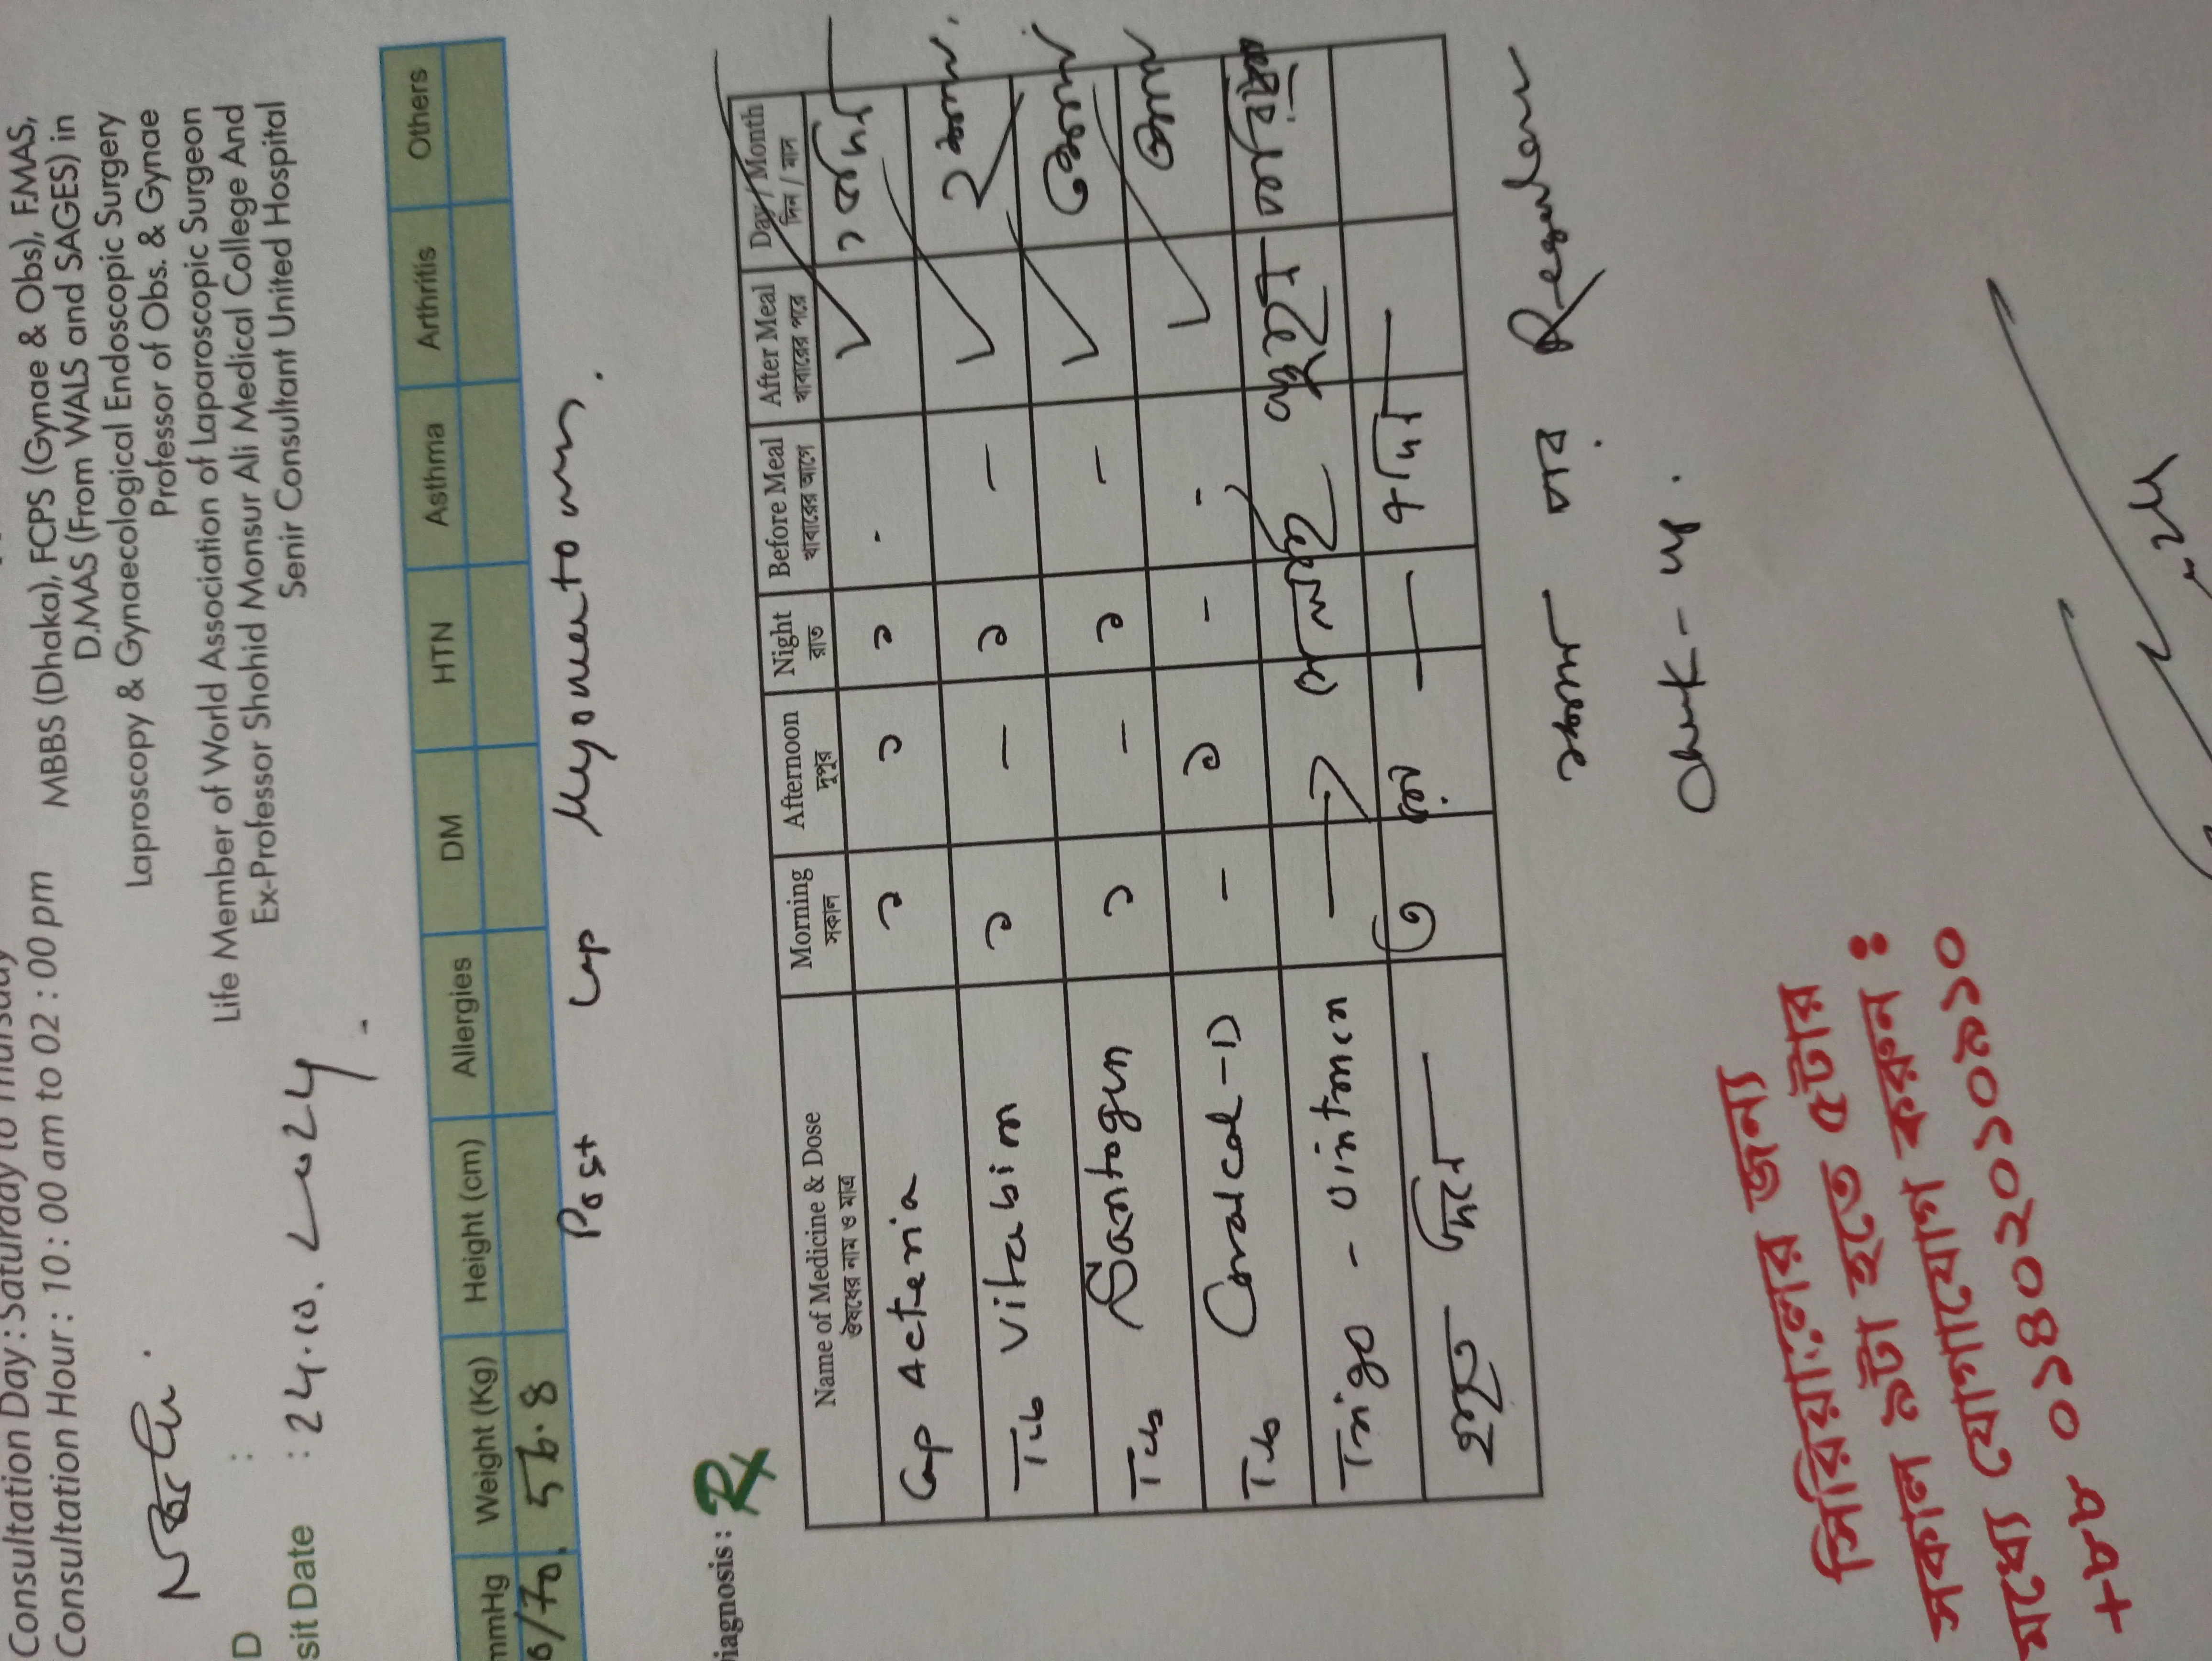 Consultation Day : Saturday to Thursday
Consultation Hour : 10 : 00 am to 02 : 00 pm
MBBS (Dhaka), FCPS (Gynae & Obs), F.MAS,
D.MAS (From WALS and SAGES) in
Laproscopy & Gynaecological Endoscopic Surgery
Professor of Obs. & Gynae
Life Member of World Association of Laparoscopic Surgeon
Ex-Professor Shohid Monsur Ali Medical College And
Senir Consultant United Hospital
D :
sit Date : 24.10.2024
mmHg Weight (Kg) Height (cm) Allergies DM HTN Asthma Arthritis Others
/70. 56.8
Post Lap Myomectomy.
iagnosis : Rx
Name of Medicine & Dose Morning Afternoon Night Before Meal After Meal Day / Month
ঔষধের নাম ও মাত্র সকাল দুপুর রাত খাবারের আগে খাবারের পরে দিন / মাস
Cap Acteria ১ ১ ১ - ✓
Tab Vitabin ১ - ১ - ✓ ২মাস
Tab Santogen ১ - ১ - ✓ ৩মাস
Tab Coralcal-D - ১ - - ✓ ৩মাস
Trigo - ointmen
১মাস পর
Check-up.
সিরিয়ালের জন্য
সকাল ৯টা হতে ৫টার
মধ্যে যোগাযোগ করুন :
+৮৮ ০১৪০২০১০৯১০